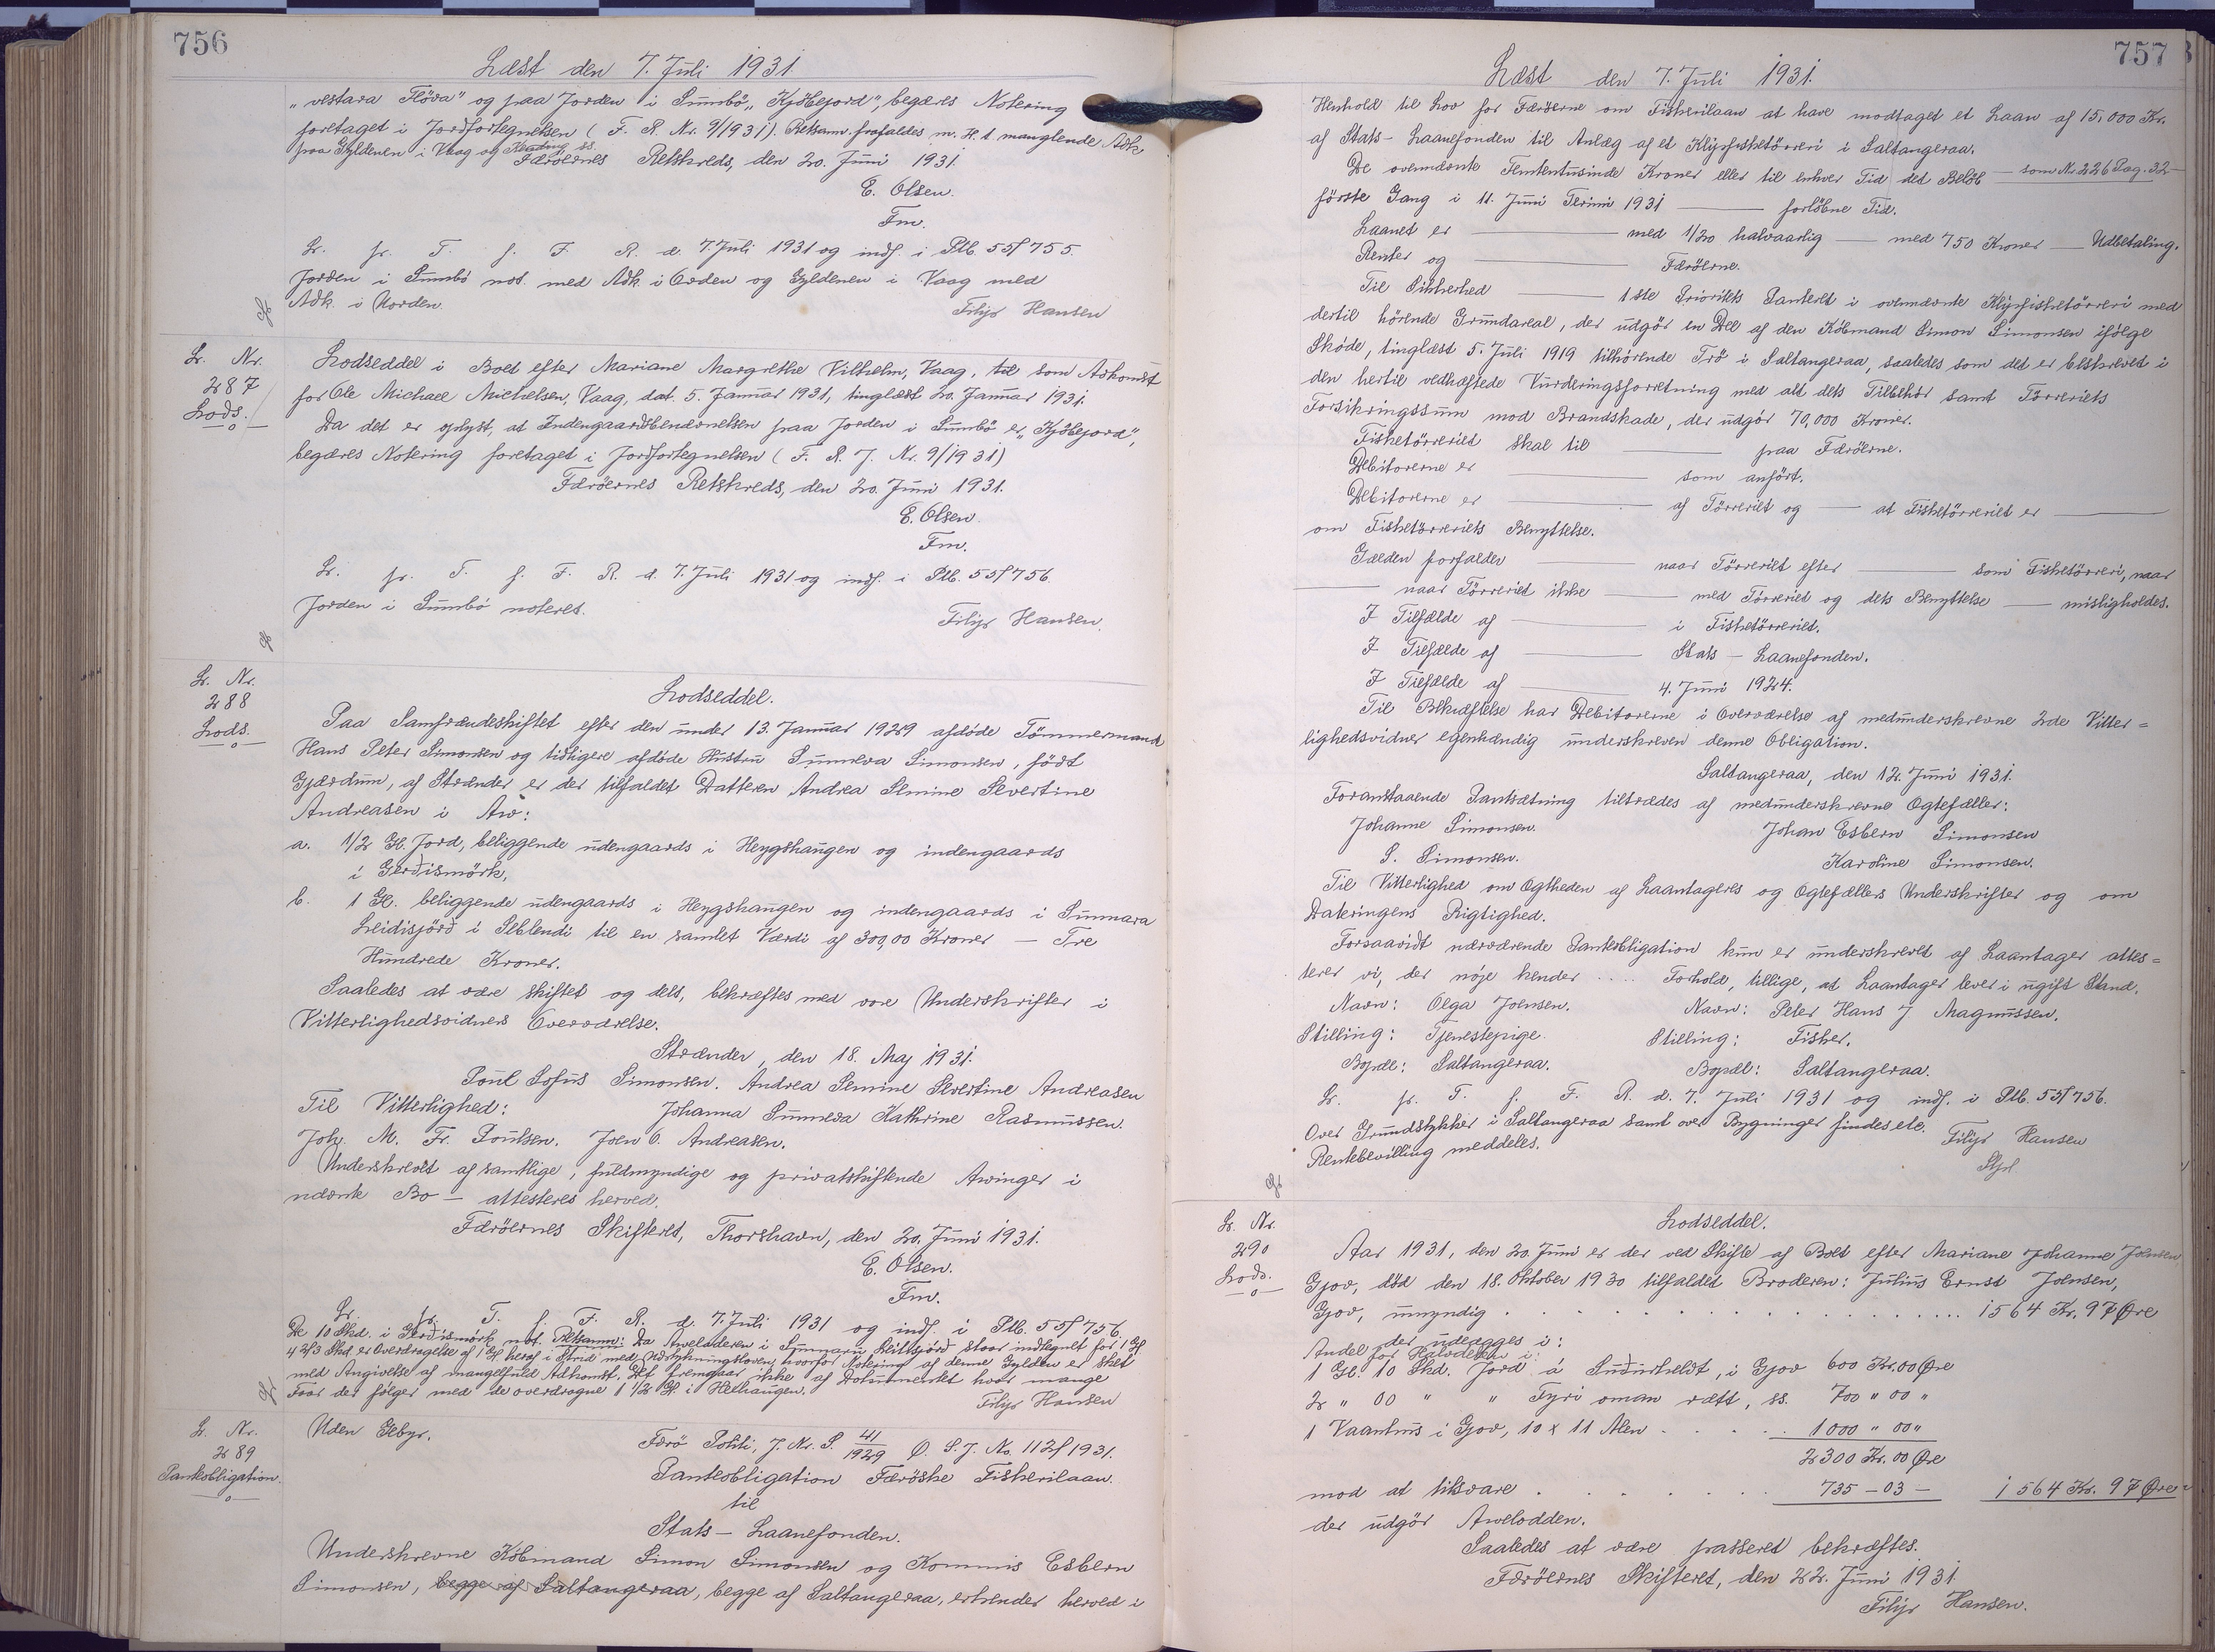 756
Læst den 7. Juli 1931.
"vestara Flöra" og paa Jorden i Sumbö "Kjöbejord", begæres Notering
foretaget i Jordfortegnelsen (F. R. Nr. 9/1931). Retsanm. frafaldes m. H. t. manglende Adk.
paa Gyldenen i Vaag og
Færöernes Retskreds, den 20. Juni 1931.
E. Olsen.
Fm.
Lr. fr. T. f. F. R. d. 7. Juli 1931 og indf. i Ptb. 55f 755.
Jorden i Sumbö not. med Adk. i Orden og Gyldenen i Vaag med
Adk. i Uorden.
Filip Hansen
Lr. Nr.
287
Lods.
Lodseddel i Boet efter Mariane Margrethe Vilhelm, Vaag, til som Adkomst
for Ole Michael Michelsen, Vaag, dat. 5. Januar 1931, tinglæst 20. Januar 1931.
Da det er oplyst, at Indengaardsbenævnelsen paa Jorden i Sumbö er "Kjöbejord",
begæres Notering foretaget i Jordfortegnelsen (F. R. J. Nr. 9/1931)
Færöernes Retskreds, den 20. Juni 1931.
E. Olsen.
Fm.
Lr. fr. T. f. F. R. d. 7. Juli 1931 og indf. i Ptb. 55f 756.
Jorden i Sumbö noteret.
Filip Hansen.
Lr. Nr.
288
Lods.
Lodseddel.
Paa Samfrændeskiftet efter den under 13. Januar 1929 afdöde Tömmermand
Hans Peter Simonsen og tidligere afdöde Hustru Sunneva Simonsen, födt
Gjærdum, af Strænder er der tilfaldet Datteren Andrea Semine Severtine
Andreasen i Arv:
a. 1/2 Gl. Jord, beliggende udengaards i Heygshaugen og indengaards
i Gerðismörk.
b. 1 Gl. beliggende udengaards i Heygshaugen og indengaards i Sunnara
Leidisjörð i Selblendi til en samlet Værdi af 300,00 Kroner — Tre
Hundrede Kroner.
Saaledes at være skiftet og delt, bekræftes med vore Underskrifter i
Vitterlighedsvidners Overværelse.
Strænder, den 18. Maj 1931.
Poul Sofus Simonsen. Andrea Semine Severtine Andreasen
Til Vitterlighed: Johanna Sunneva Kathrine Rasmussen.
Johs. M. Fr. Poulsen. Joen O. Andreasen.
Underskrevet af samtlige, fuldmyndige og privatskiftende Arvinger i
nævnte Bo — attesteres herved.
Færöernes Skifteret, Thorshavn, den 20. Juni 1931.
E. Olsen.
Fm.
Lr. fr. T. f. F. R. d. 7. Juli 1931 og indf. i Ptb. 55f 756.
De 10 Skd. i Gerðismörk not. Retsanm: Da Arveladeren i Sunnaru Leittisjörd staar indtegnet for 1 Gl
4 2/3 Skd. er Overdragelse af 1 Gl. heraf i Strid med Udstykningsloven, hvorfor Notering af denne Gylden er sket
med Angivelse af mangelfuld Adkomst. Det fremgaar ikke af Dokumentet hvor mange
Faar der fölger med de overdragne 1 1/2 Gl. i Heihaugen.
Filip Hansen
Lr. Nr.
289
Panteobligation.
Uden Gebyr.
Færö Politi, J. Nr. S. 41/1929 Ø. L. J. No. 112f 1931.
Panteobligation Færöske Fiskerilaan
til
Stats-Laanefonden.
Underskrevne Købmand Simon Simonsen og Kommis Esbern
Simonsen, begge af Saltangeraa, begge af Saltangeraa, erkender herved i
757
Læst den 7. Juli 1931.
Henhold til Lov for Færöerne om Fiskerilaan at have modtaget et Laan af 15,000 Kr.
af Stats-Laanefonden til Anlæg af et Klipfisketörreri i Saltangeraa.
De ovennævnte Femtentusinde Kroner eller til enhver Tid det Beløb — som Nr. 226 Pag. 32 —
förste Gang i 11. Juni Termin 1931 — forlöbne Tid.
Laanet er — med 1/20 halvaarlig — med 750 Kroner — Udbetaling.
Renter og — Færöerne.
Til Sikkerhed — 1ste Prioritets Panteret i ovennævnte Klipfisketörreri med
dertil hörende Grundareal, der udgör en Del af den Köbmand Simon Simonsen ifölge
Sköde, tinglæst 5. Juli 1919 tilhörende Trö i Saltangeraa, saaledes som det er beskrevet i
den hertil vedhæftede Vurderingsforretning med alt dets Tilbehör samt Törreriets
Forsikringssum mod Brandskade, der udgör 70,000 Kroner.
Fisketörreriet skal til — paa Færöerne.
Debitorerne er — som anfört.
Debitorerne er — af Törreriet og — at Fisketörreriet er —
om Fisketörreriets Benyttelse.
Gælden forfalder — naar Törreriet efter — som Fisketörreri, naar
— naar Törreriet ikke — med Törreriet og dets Benyttelse — misligholdes.
I Tilfælde af — i Fisketörreriet.
I Tilfælde af — Stats-Laanefonden.
I Tilfælde af — 4. Juni 1924.
Til Bekræftelse har Debitorerne i Overværelse af medunderskrevne 2de Vitter=
lighedsvidner egenhændig underskreven denne Obligation.
Saltangeraa, den 12. Juni 1931.
Foranstaaende Pantsætning tiltrædes af medunderskrevne Ægtefæller:
Johanne Simonsen. Johan Esbern Simonsen
S. Simonsen. Karoline Simonsen.
Til Vitterlighed om Ægtheden af Laantageres og Ægtefællers Underskrifter og om
Dateringens Rigtighed.
Forsaavidt nærværende Panteobligation kun er underskrevet af Laantager attes=
terer vi, der nöje kender .... Forhold, tillige, at Laantager lever i ugift Stand.
Navn: Olga Joensen. Navn: Peter Hans J Magnussen.
Stilling: Tjenestepige. Stilling: Fisker.
Bopæl: Saltangeraa. Bopæl: Saltangeraa.
Lr. fr. T. f. F. R. d. 7. Juli 1931 og indf. i Ptb. 55f 756.
Over Grundstykker i Saltangeraa samt over Bygninger findes etc.
Rentebevilling meddeles.
Filip Hansen
Lr. Nr.
290
Lods.
Lodseddel.
Aar 1931, den 20. Juni er der ved Skifte af Boet efter Mariane Johanne Joensen
Gjov, död den 18. Oktober 1930 tilfaldet Broderen: Julius Ernst Joensen,
Gjov, umyndig . . . . . . . . . . 1564 Kr. 97 Øre
Andel der udlægges i:
for Halvdelen i:
1 Gl. 10 Skd. Jord á Suðurheldt, i Gjov 600 Kr. 00 Øre
2 " 00 " " Fyri oman rætt, ss. 700 " 00 "
1 Vaanhus i Gjov, 10 x 11 Alen . . . . 1000 " 00 "
2300 Kr. 00 Øre
mod at tilsvare . . . . . . 735 - 03 - 1564 Kr. 97 Øre
der udgör Arvelodden.
Saaledes at være passeret bekræftes.
Færöernes Skifteret, den 22. Juni 1931.
Filip Hansen.